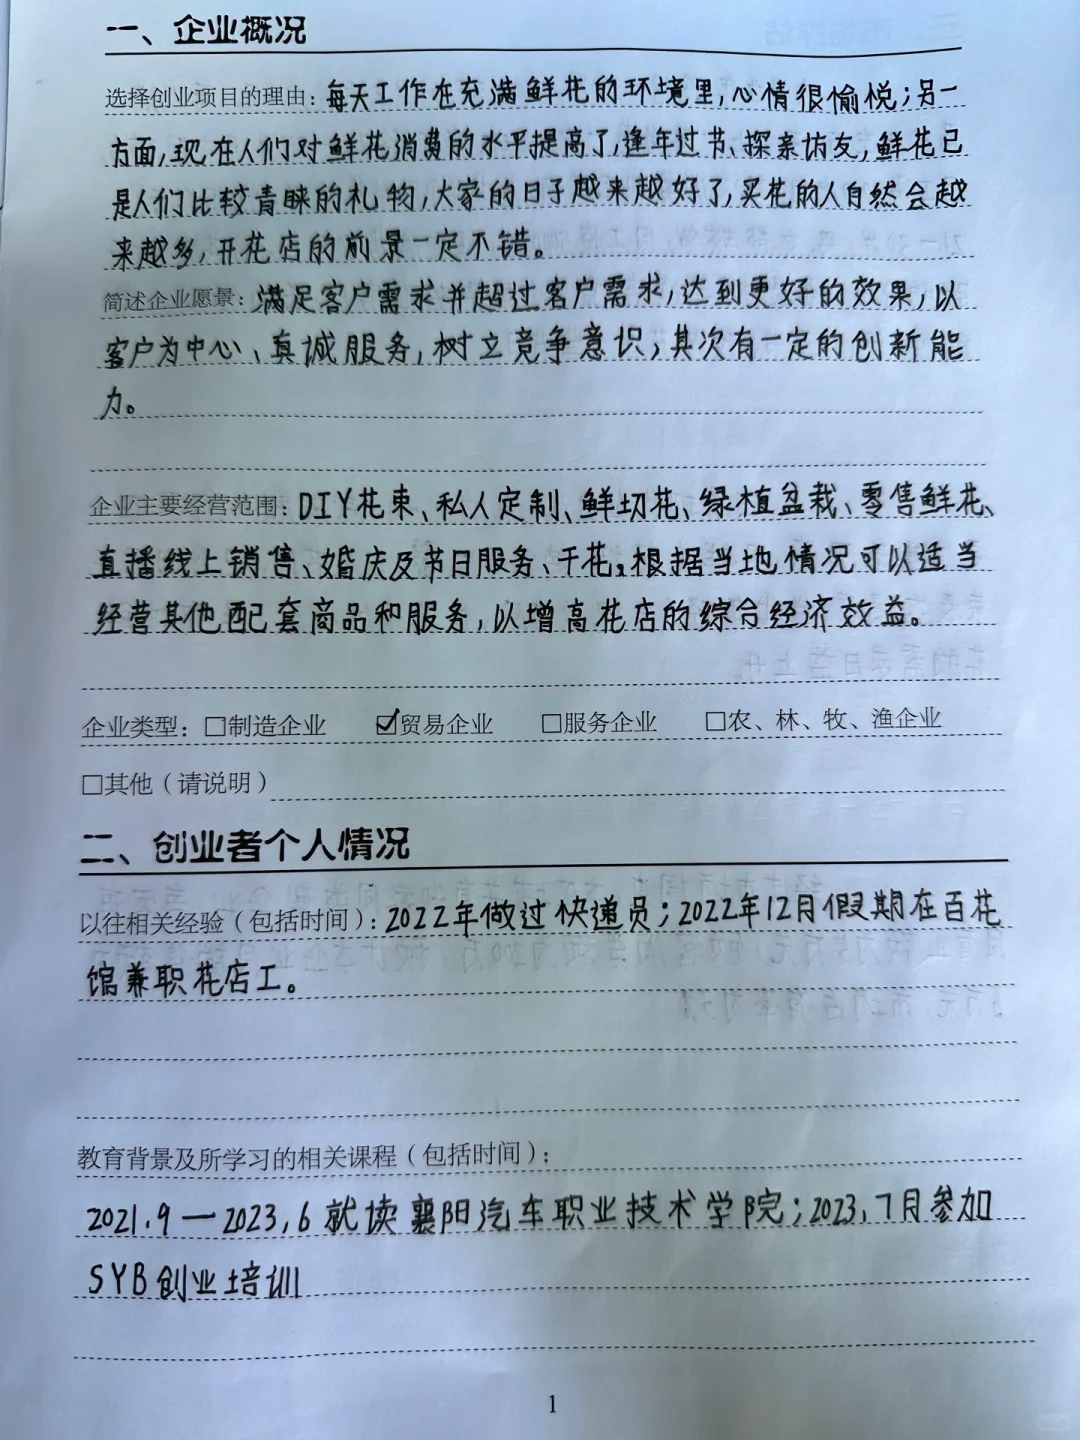 一、企业概况
选择创业项目的理由：每天工作在充满鲜花的环境里，心情很愉悦；另一
方面，现在人们对鲜花消费的水平提高了，逢年过节、探亲访友，鲜花已
是人们比较青睐的礼物，大家的日子越来越好了，买花的人自然会越
来越多，开花店的前景一定不错。
简述企业愿景：满足客户需求并超过客户需求，达到更好的效果，以
客户为中心、真诚服务，树立竞争意识，其次有一定的创新能
力。
企业主要经营范围：DIY花束、私人定制、鲜切花、绿植盆栽、零售鲜花、
直播线上销售、婚庆及节日服务、干花。根据当地情况可以适当
经营其他配套商品和服务，以增高花店的综合经济效益。
企业类型：□制造企业 ☑贸易企业 □服务企业 □农、林、牧、渔企业
□其他（请说明）
二、创业者个人情况
以往相关经验（包括时间）：2022年做过快递员；2022年12月假期在百花
馆兼职花店工。
教育背景及所学习的相关课程（包括时间）：
2021.9—2023.6就读襄阳汽车职业技术学院；2023.7月参加
SYB创业培训
1